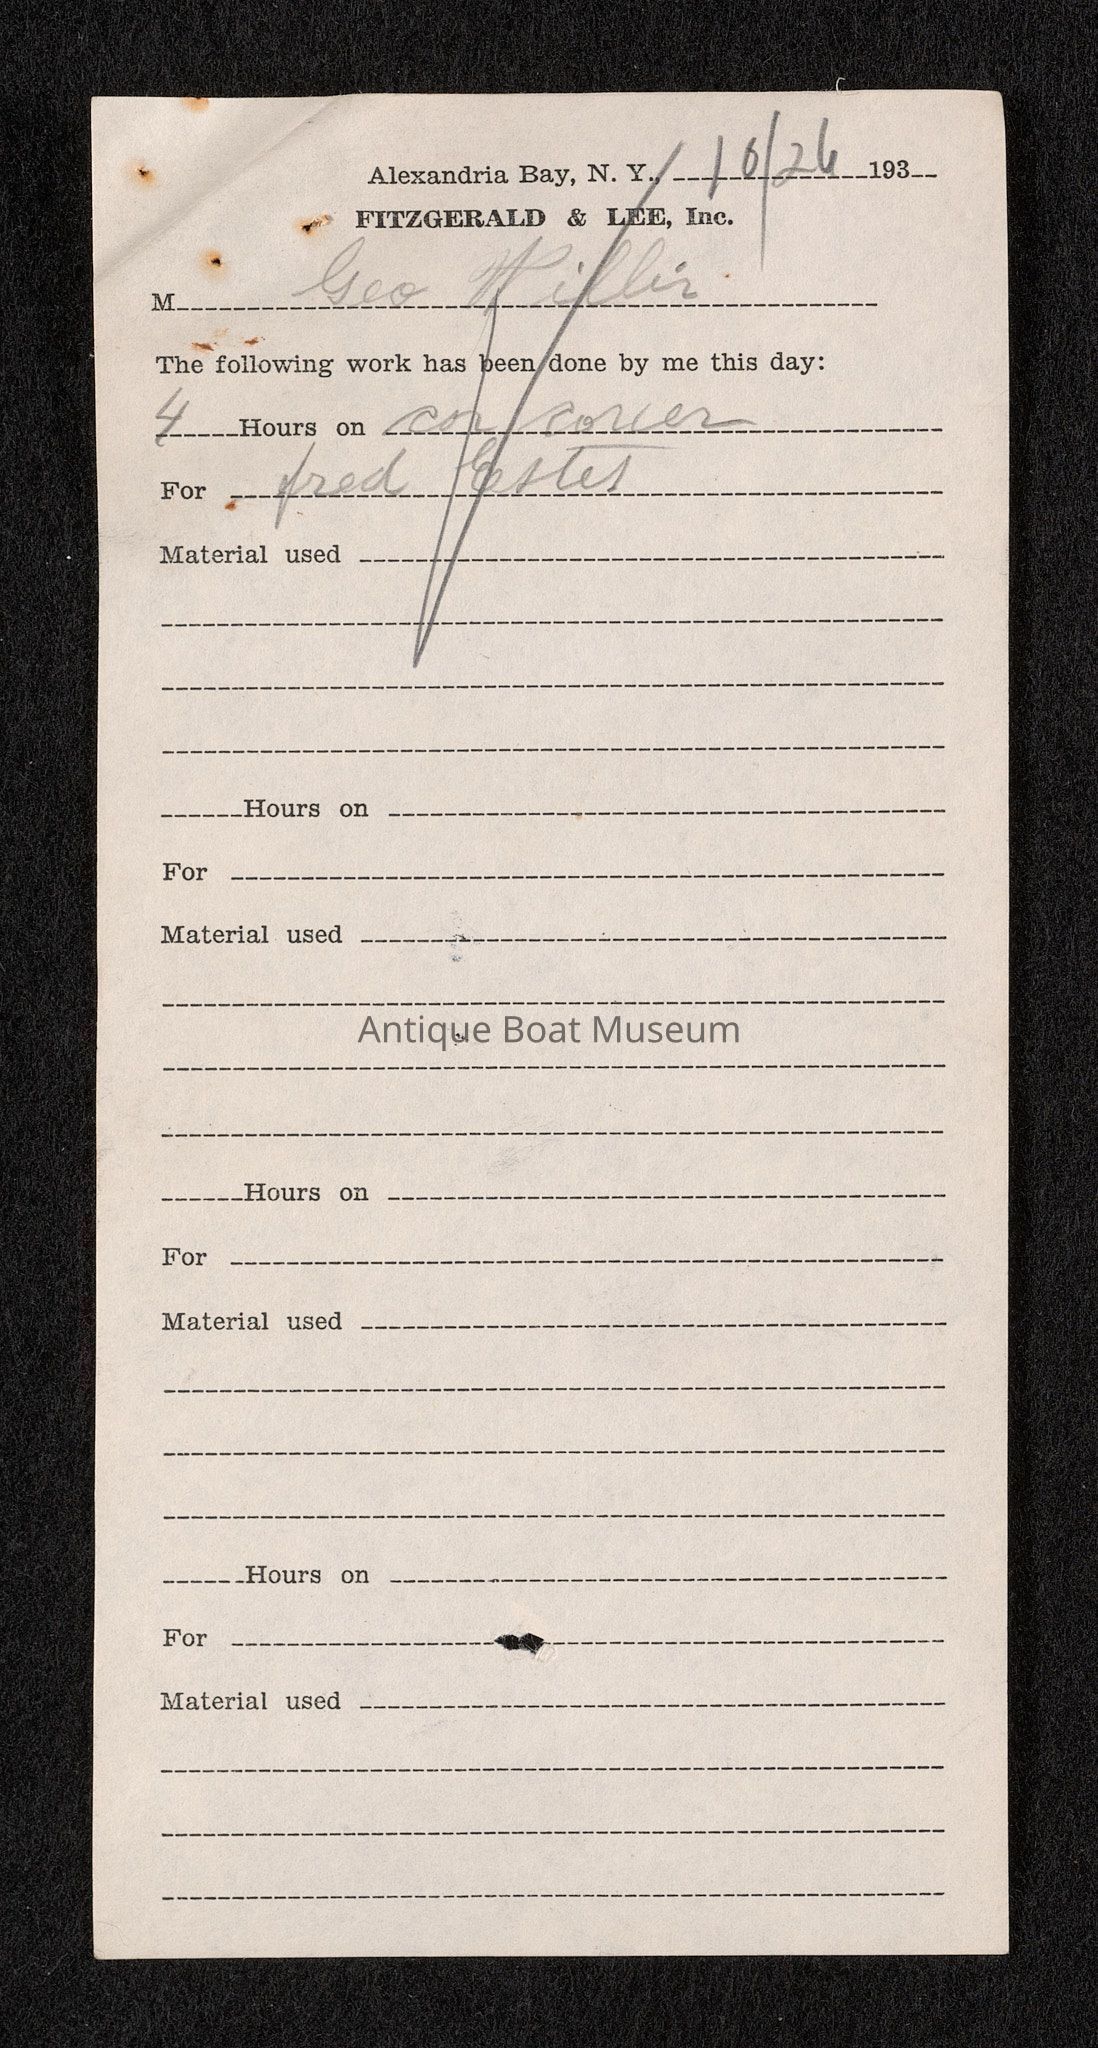 Alexandria Bay, N. Y., 10/26 193
FITZGERALD & LEE, Inc.
M Geo Willix
The following work has been done by me this day:
4 Hours on
For fred Estes
Material used
Hours on
For
Material used
Antique Boat Museum
Hours on
For
Material used
Hours on
For
Material used